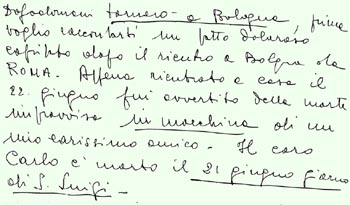 Dopodomani tornerò a Bologna, prima
voglio raccontarti un fatto doloroso
capitato dopo il rientro a Bologna da
ROMA. Appena rientrato a casa il
22 giugno fui avvertito della morte
improvvisa in macchina di un
mio carissimo amico. Il caro
Carlo è morto il 21 giugno giorno
di S. Luigi -